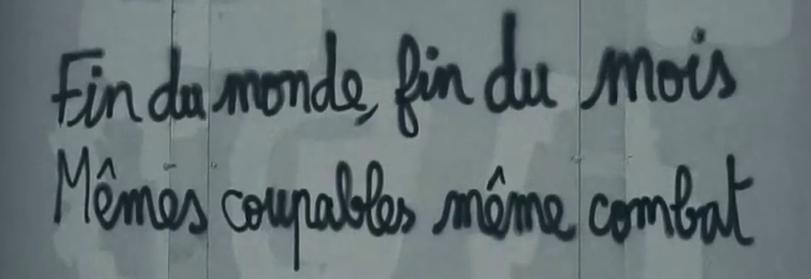 Fin du monde, fin du mois
Mêmes coupables même combat